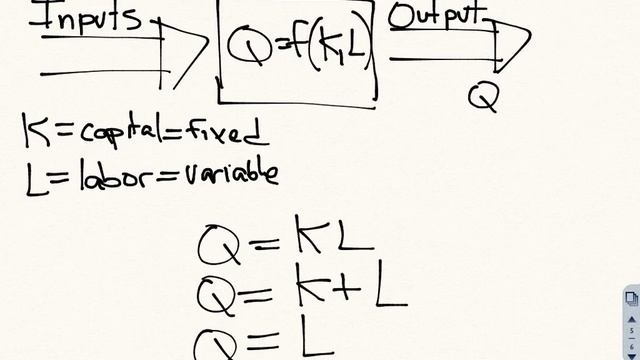 Inputs
Q=f(K,L)
Output
Q
K=capital=fixed
L=labor=variable
Q=KL
Q=K+L
Q=L
5
6